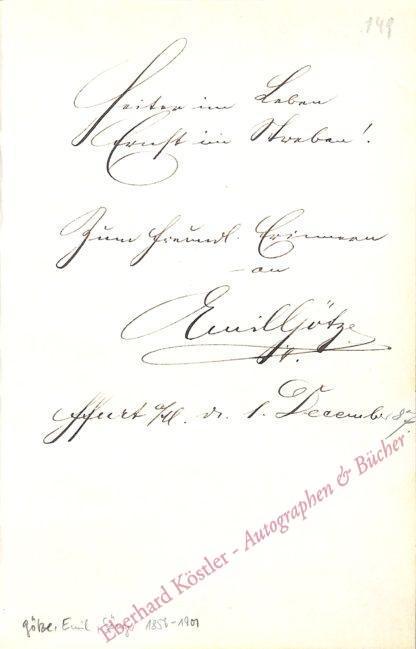 149
Heiter im Leben
Ernst im Streben!
Zum freundl. Erinnern
an
Emil Götze
Ffurt a/M. d. 1. December 87.
Eberhard Köstler - Autographen & Bücher
Götze, Emil 1856-1901